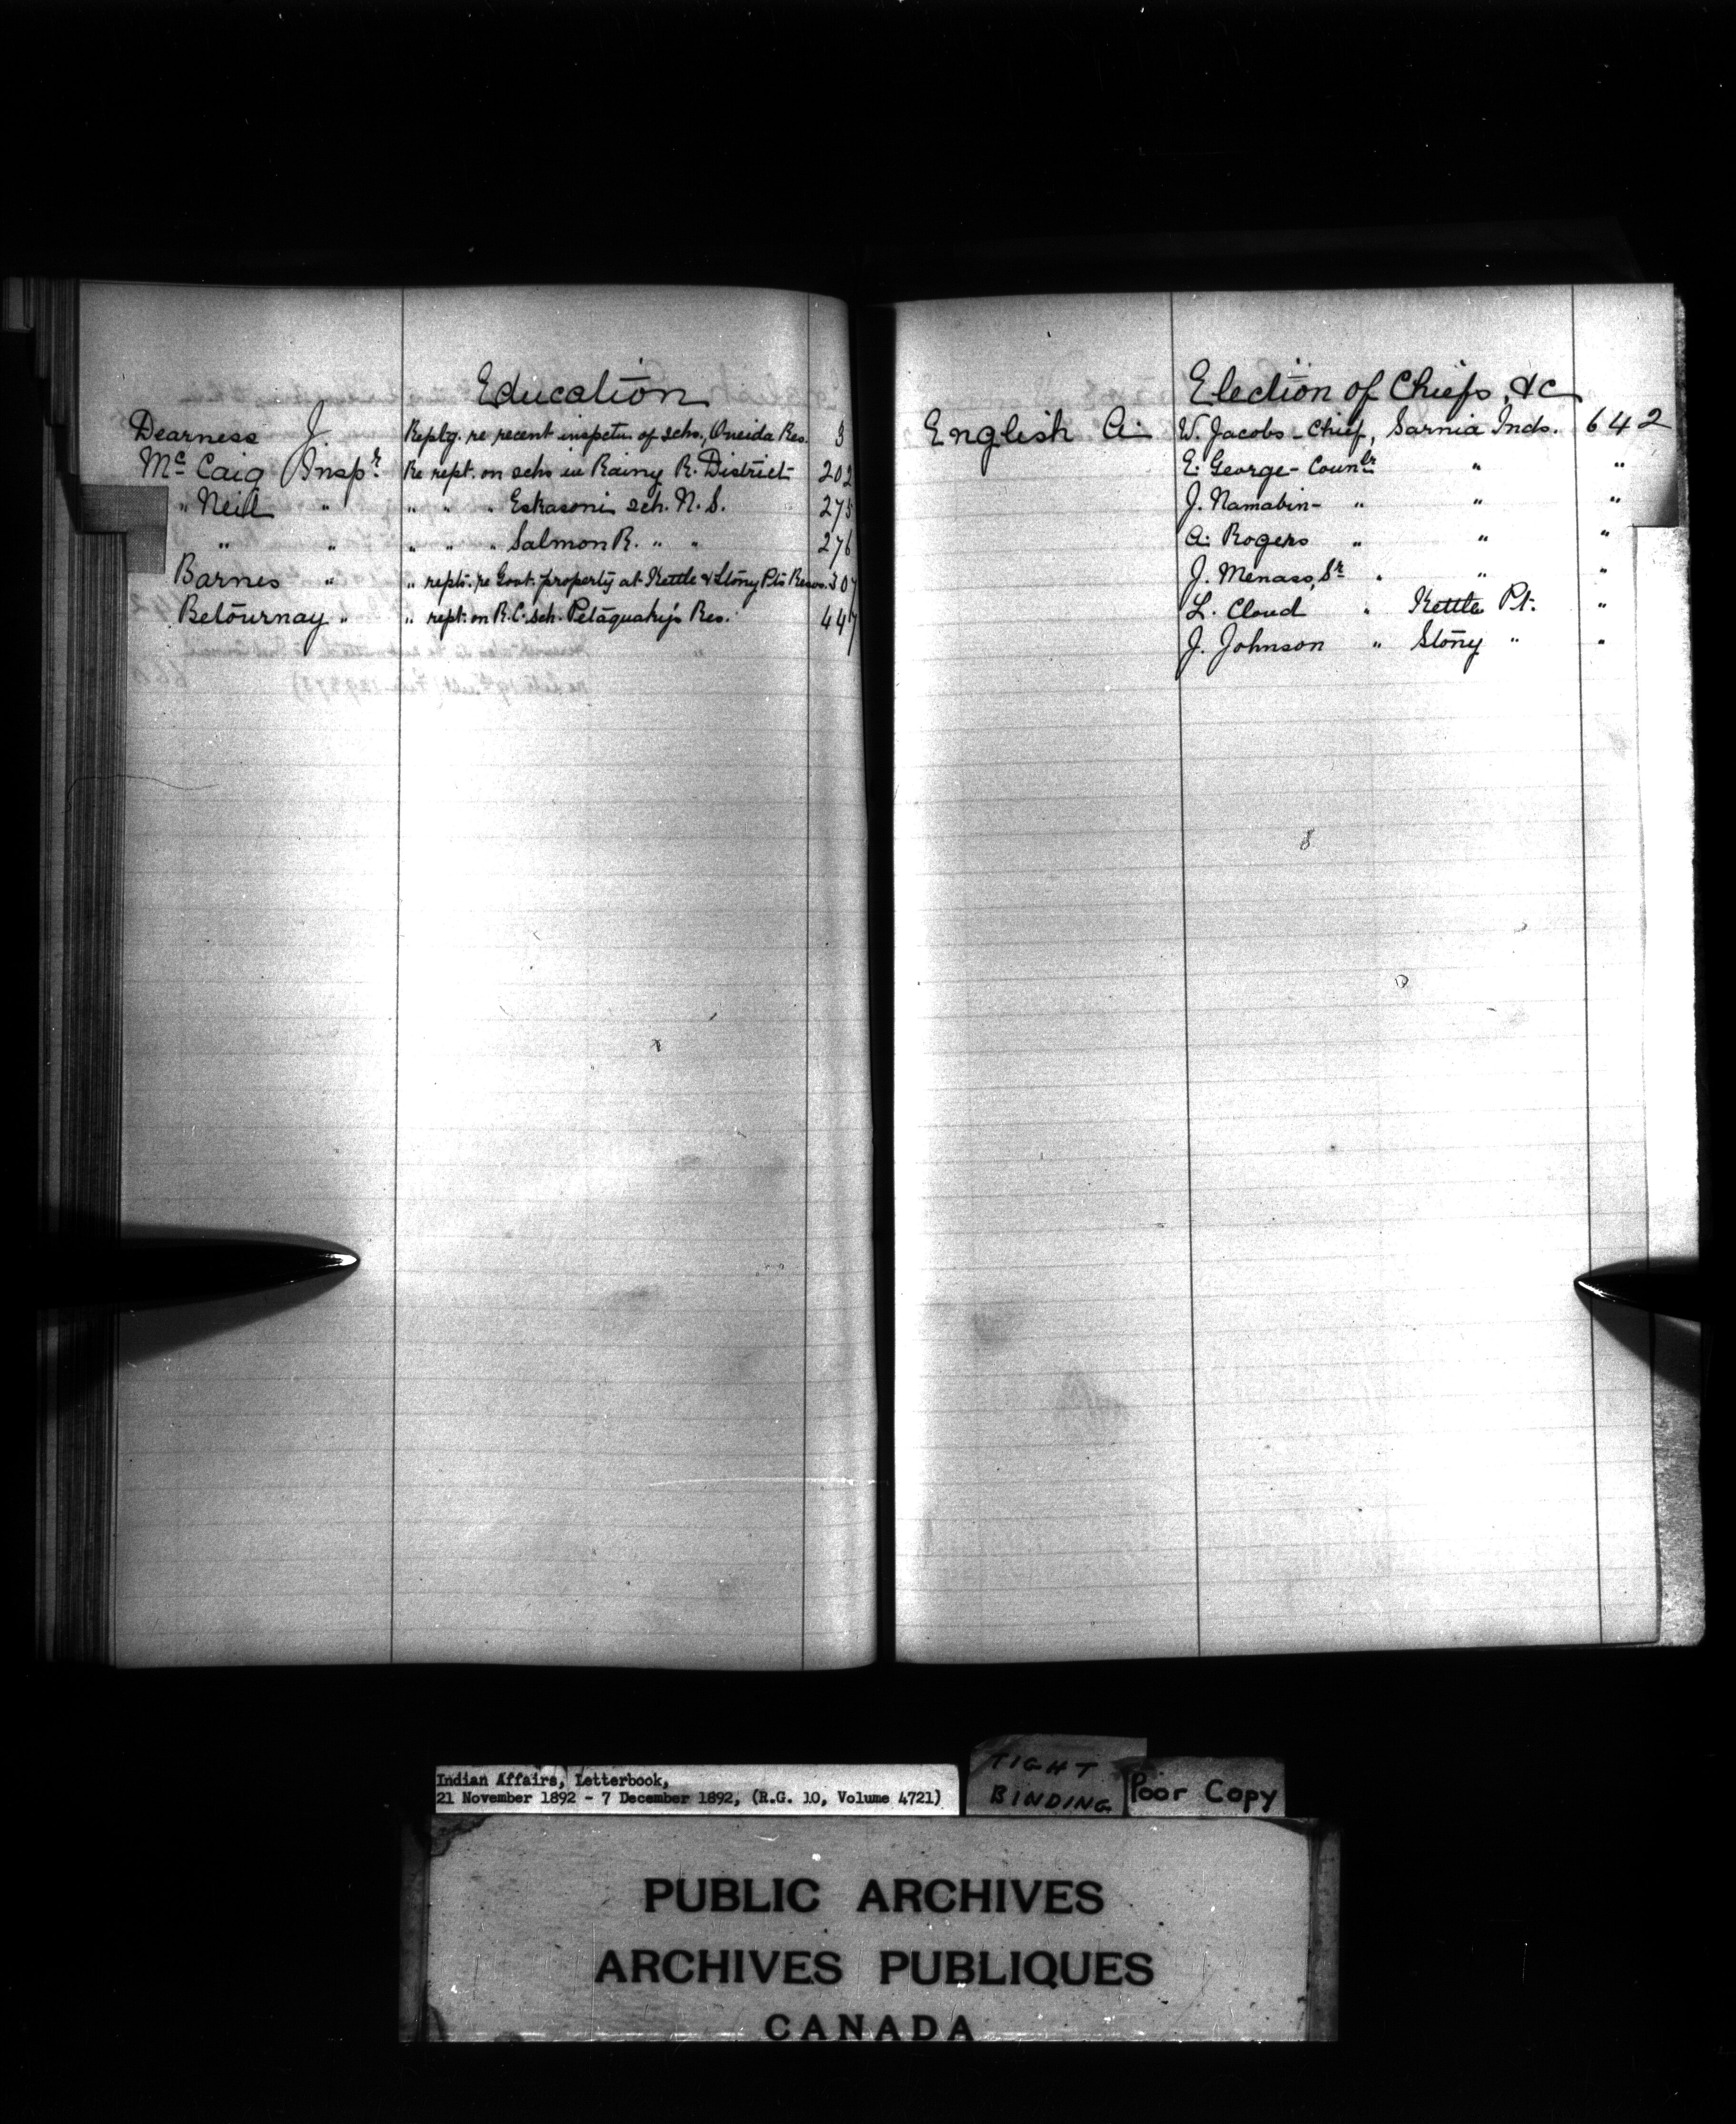 Education
Dearness J. Replyg. re recent inspctn of schs., Oneida Res. 3
McCaig Inspr. Re rept. on schs in Rainy R. District 202
" Neil " " " " Eskasoni sch. N.S. 275
" " " " " Salmon R. " " 276
Barnes " " repts. re Govt. property at Kettle & Stony Pts Resvs. 307
Betournay " " rept. on R.C. sch. Petaquakey's Res. 447
Election of Chiefs, &c
English A. W. Jacobs - Chief, Sarnia Inds. 642
E. George - Counlr " "
J. Namabin - " " "
A. Rogers " " "
J. Menass, Sr " " "
L. Cloud " Kettle Pt. "
J. Johnson " Stony " "
Indian Affairs, Letterbook,
21 November 1892 - 7 December 1892, (R.G. 10, Volume 4721)
TIGHT
BINDING
Poor Copy
PUBLIC ARCHIVES
ARCHIVES PUBLIQUES
CANADA